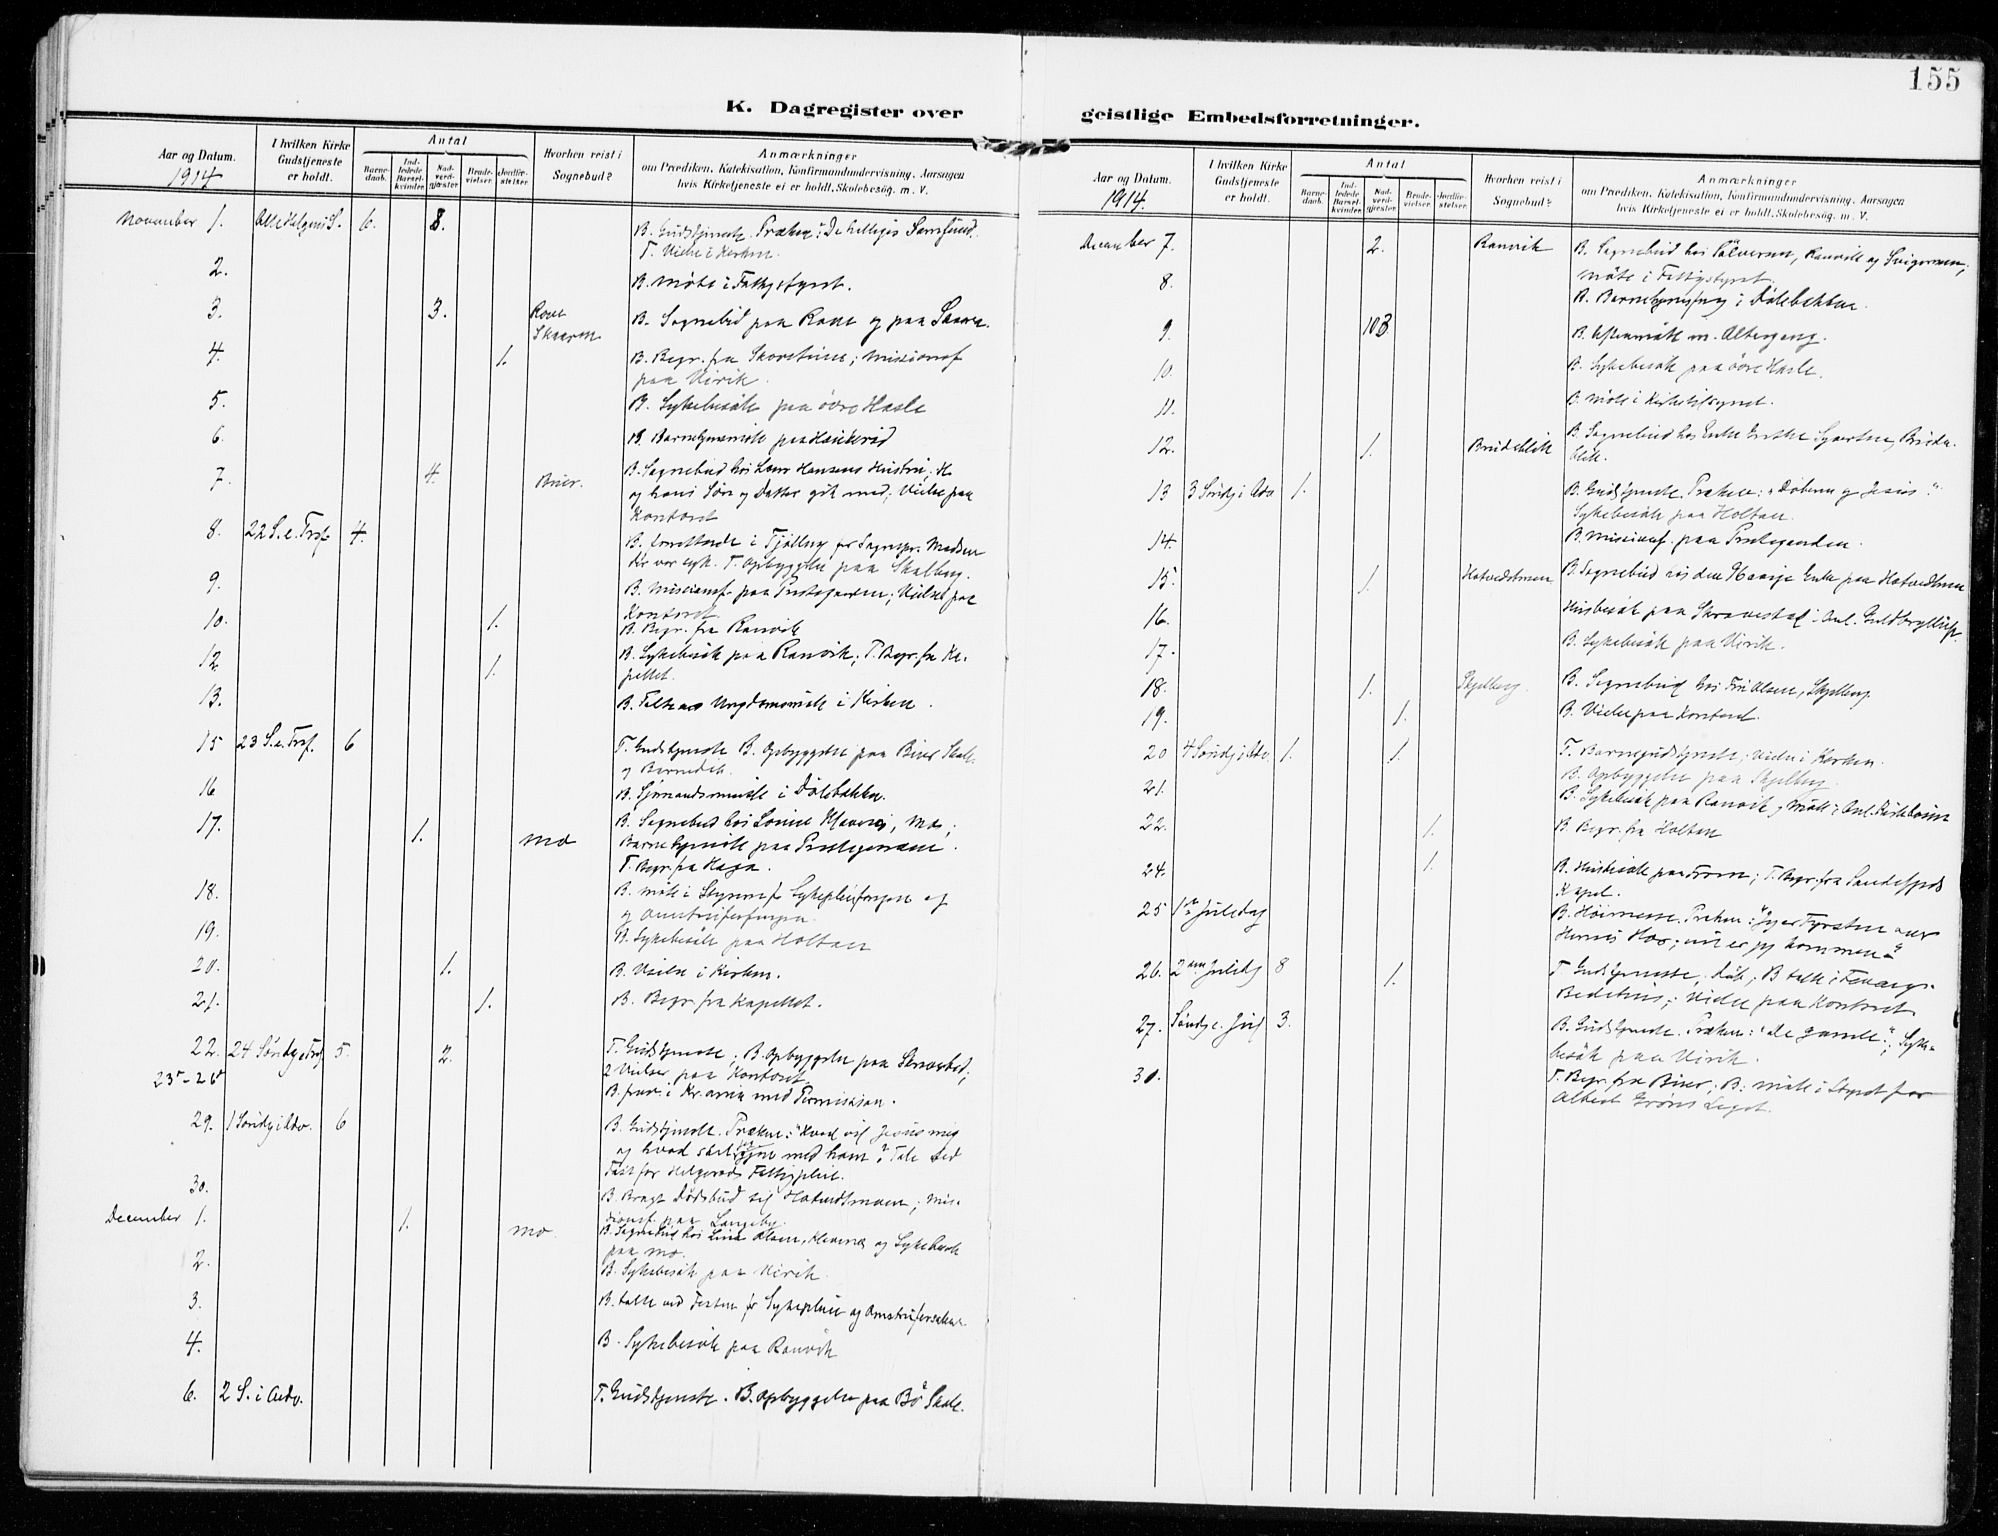 155
K. Dagregister over geistlige Embedsforretninger.
Aar og Datum. 1914
I hvilken Kirke Gudstjeneste er holdt.
Antal
Barnedaab.
Indledede Barselkvinder
Nadverdgjæster
Brudevielser
Jordfæstelser
Hvorhen reist i Sognebud?
Anmærkninger
om Prædiken, Katekisation, Konfirmandundervisning, Aarsagen
hvis Kirketjeneste ei er holdt, Skolebesøg. m. V.
November 1. Alle Helgens S. 6. 8. B. Gudstjeneste. Præken: De helliges Samfund.
T. Vielse i Kirken.
2. B. Møte i Fattigstyret.
3. 3. B. Sognebud paa og paa
4. 1. B. Begr. fra ; Missionsf.
paa Virik.
5. B. Sykebesøk paa øvre Hasle
6. B. paa Haukerød
7. 4. Buer. B. Sognebud hos Hansens Hustru. H
og hans Søn og Datter gik med; Vielse paa
Kontoret
8. 22 S. e. Tref. 4. B. i Tjølling for Sognepr. Madsen
var syk. T. Opbyggelse paa Skalberg.
9. B. Missionsf. paa Prestegaarden; Vielse paa
Kontoret
10. 1. B. Begr. fra Ranvik
12. 1. B. Sykebesøk paa Ranvik; T. Begr. fra Ka-
pellet.
13. B. Ungdomsmøte i Kirken.
15 23 S. e. Tref. 6 T. Gudstjeneste B. Opbyggelse paa Buer Skole
og
16 B. Sjømandsmøte i Dølebakken.
17. 1. Mo B. Sognebud hos Mo;
paa Prestegaarden.
T. Begr. fra
18. B. Møte i Styret f. Sykepleieforeningen
og
19. B. Sykebesøk paa Holtan
20. 1. B. Vielse i Kirken.
21. 1. B. Begr. fra Kapellet.
22. 24 Søndg. e. Tref. 5. 2. T. Gudstjeneste; B. Opbyggelse paa
2 Vielser paa Kontoret.
23de-26de B. i Kr.ania med Permission.
29. 1 Søndg. i Adv. 6 B. Gudstjeneste. Præken: "Hvad vil Jesus mig
og hvad skal jeg gjøre med ham"? Tale ved
Fest for
30. B. Bragt Dødsbud til ; Mis-
sionsf. paa Langeby.
December 1. 1. Mo B. Sognebud hos Olsen, og Sykebesøk
paa Mo.
2. B. Sykebesøk paa Virik
3. B. talte ved Festen for Sykepleie og
4. B. Sykebesøk paa Ranvik
6. 2 S. i Adv. T. Gudstjeneste. B. Opbyggelse paa Bø Skole.
Aar og Datum. 1914.
I hvilken Kirke Gudstjeneste er holdt.
Antal
Barnedaab.
Indledede Barselkvinder
Nadverdgjæster
Brudevielser
Jordfæstelser
Hvorhen reist i Sognebud?
Anmærkninger
om Prædiken, Katekisation, Konfirmandundervisning, Aarsagen
hvis Kirketjeneste ei er holdt, Skolebesøg. m. V.
December 7. 2. Ranvik B. Sognebud hos Ranvik og Svigersøn;
Møte i Fattigstyret.
8. B. i Dølebakken.
9. 103 B. Aftenmøte m. Altergang.
10. B. Sykebesøk paa øvre Hasle.
11. B. Møte i Kirketilsynet.
12. 1. Breideblik B. Sognebud hos Enke Breide-
blik.
13 3 Søndg. i Adv. 1. B. Gudstjeneste. Præken: "Døberen og Jesus."
Sykebesøk paa Holtan.
14. B. Missionsf. paa Prestegaarden.
15. 1. Hotvedtmoen B. Sognebud hos den Enke paa Hotvedtmoen
16. Husbesøk paa Skravestad i Anl. Guldbryllup.
17. B. Sykebesøk paa Virik.
18. 1. Skjelberg. B. Sognebud hos Fru Olsen, Skjelberg
19. 1. B. Vielse paa Kontoret.
20 4 Søndg. i Adv. 1. 1. T. Barnegudstjeneste; Vielse i Kirken.
B. Opbyggelse paa Skjelberg.
21. B. Sykebesøk paa Ranvik, Møte i Anl.
22. 1. B. Begr. fra Holtan
24. 1. B. Husbesøk paa ; T. Begr. fra Sandefjords
Kapel.
25 1ste Juledag B. Høimesse. Præken: "Jeg er Fyrsten over
Herrens Hær; nu er jeg kommen"
26. 2den Juledag 8 1. T. Gudstjeneste, Daab; B. talte i
Bedehus; Vielse paa Kontoret
27. Søndg. e. Jul 3. B. Gudstjeneste. Præken: "De gamle"; Syke-
besøk paa Virik.
30. T. Begr. fra Buer; B. Møte i Styret for
Albert Grøns Legat.